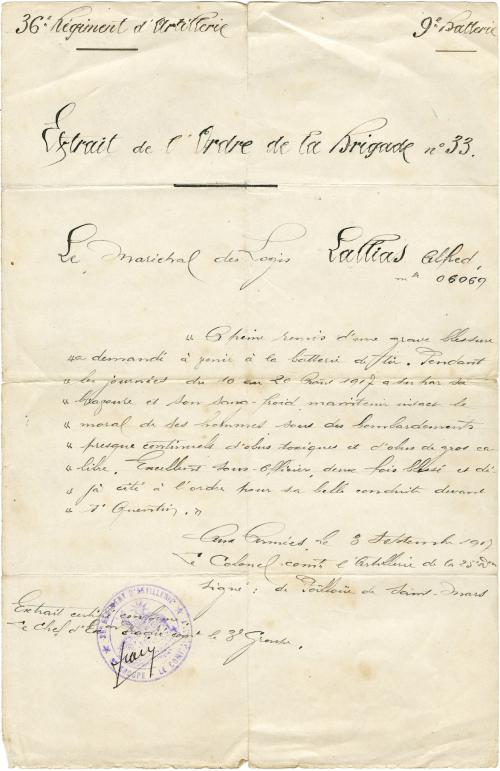 36e Régiment d'Artillerie
9e Batterie
Extrait de l'Ordre de la Brigade n° 33.
Le Maréchal des Logis Lallias Alfred,
mle 06069
"A peine remis d'une grave blessure
"a demandé à venir à la batterie de tir. Pendant
"les journées du 10 au 20 Août 1917 a su par sa
"bravoure et son sang-froid maintenir intact le
"moral de ses hommes sous des bombardements
"presque continuels d'obus toxiques et d'obus de gros ca
"libre. Excellent sous-officier, deux fois blessé et dé
"jà cité à l'ordre pour sa belle conduite devant
"St Quentin."
Aux Armées, le 3 Septembre 1917
Le Colonel comt l'Artillerie de la 25e Don
Signé: de Poilloüe de Saint-Mars
Extrait certifié conforme
Le Chef d'Escadron comt le 3e Groupe.
36e REGIMENT D'ARTILLERIE
GROUPE LE COMT